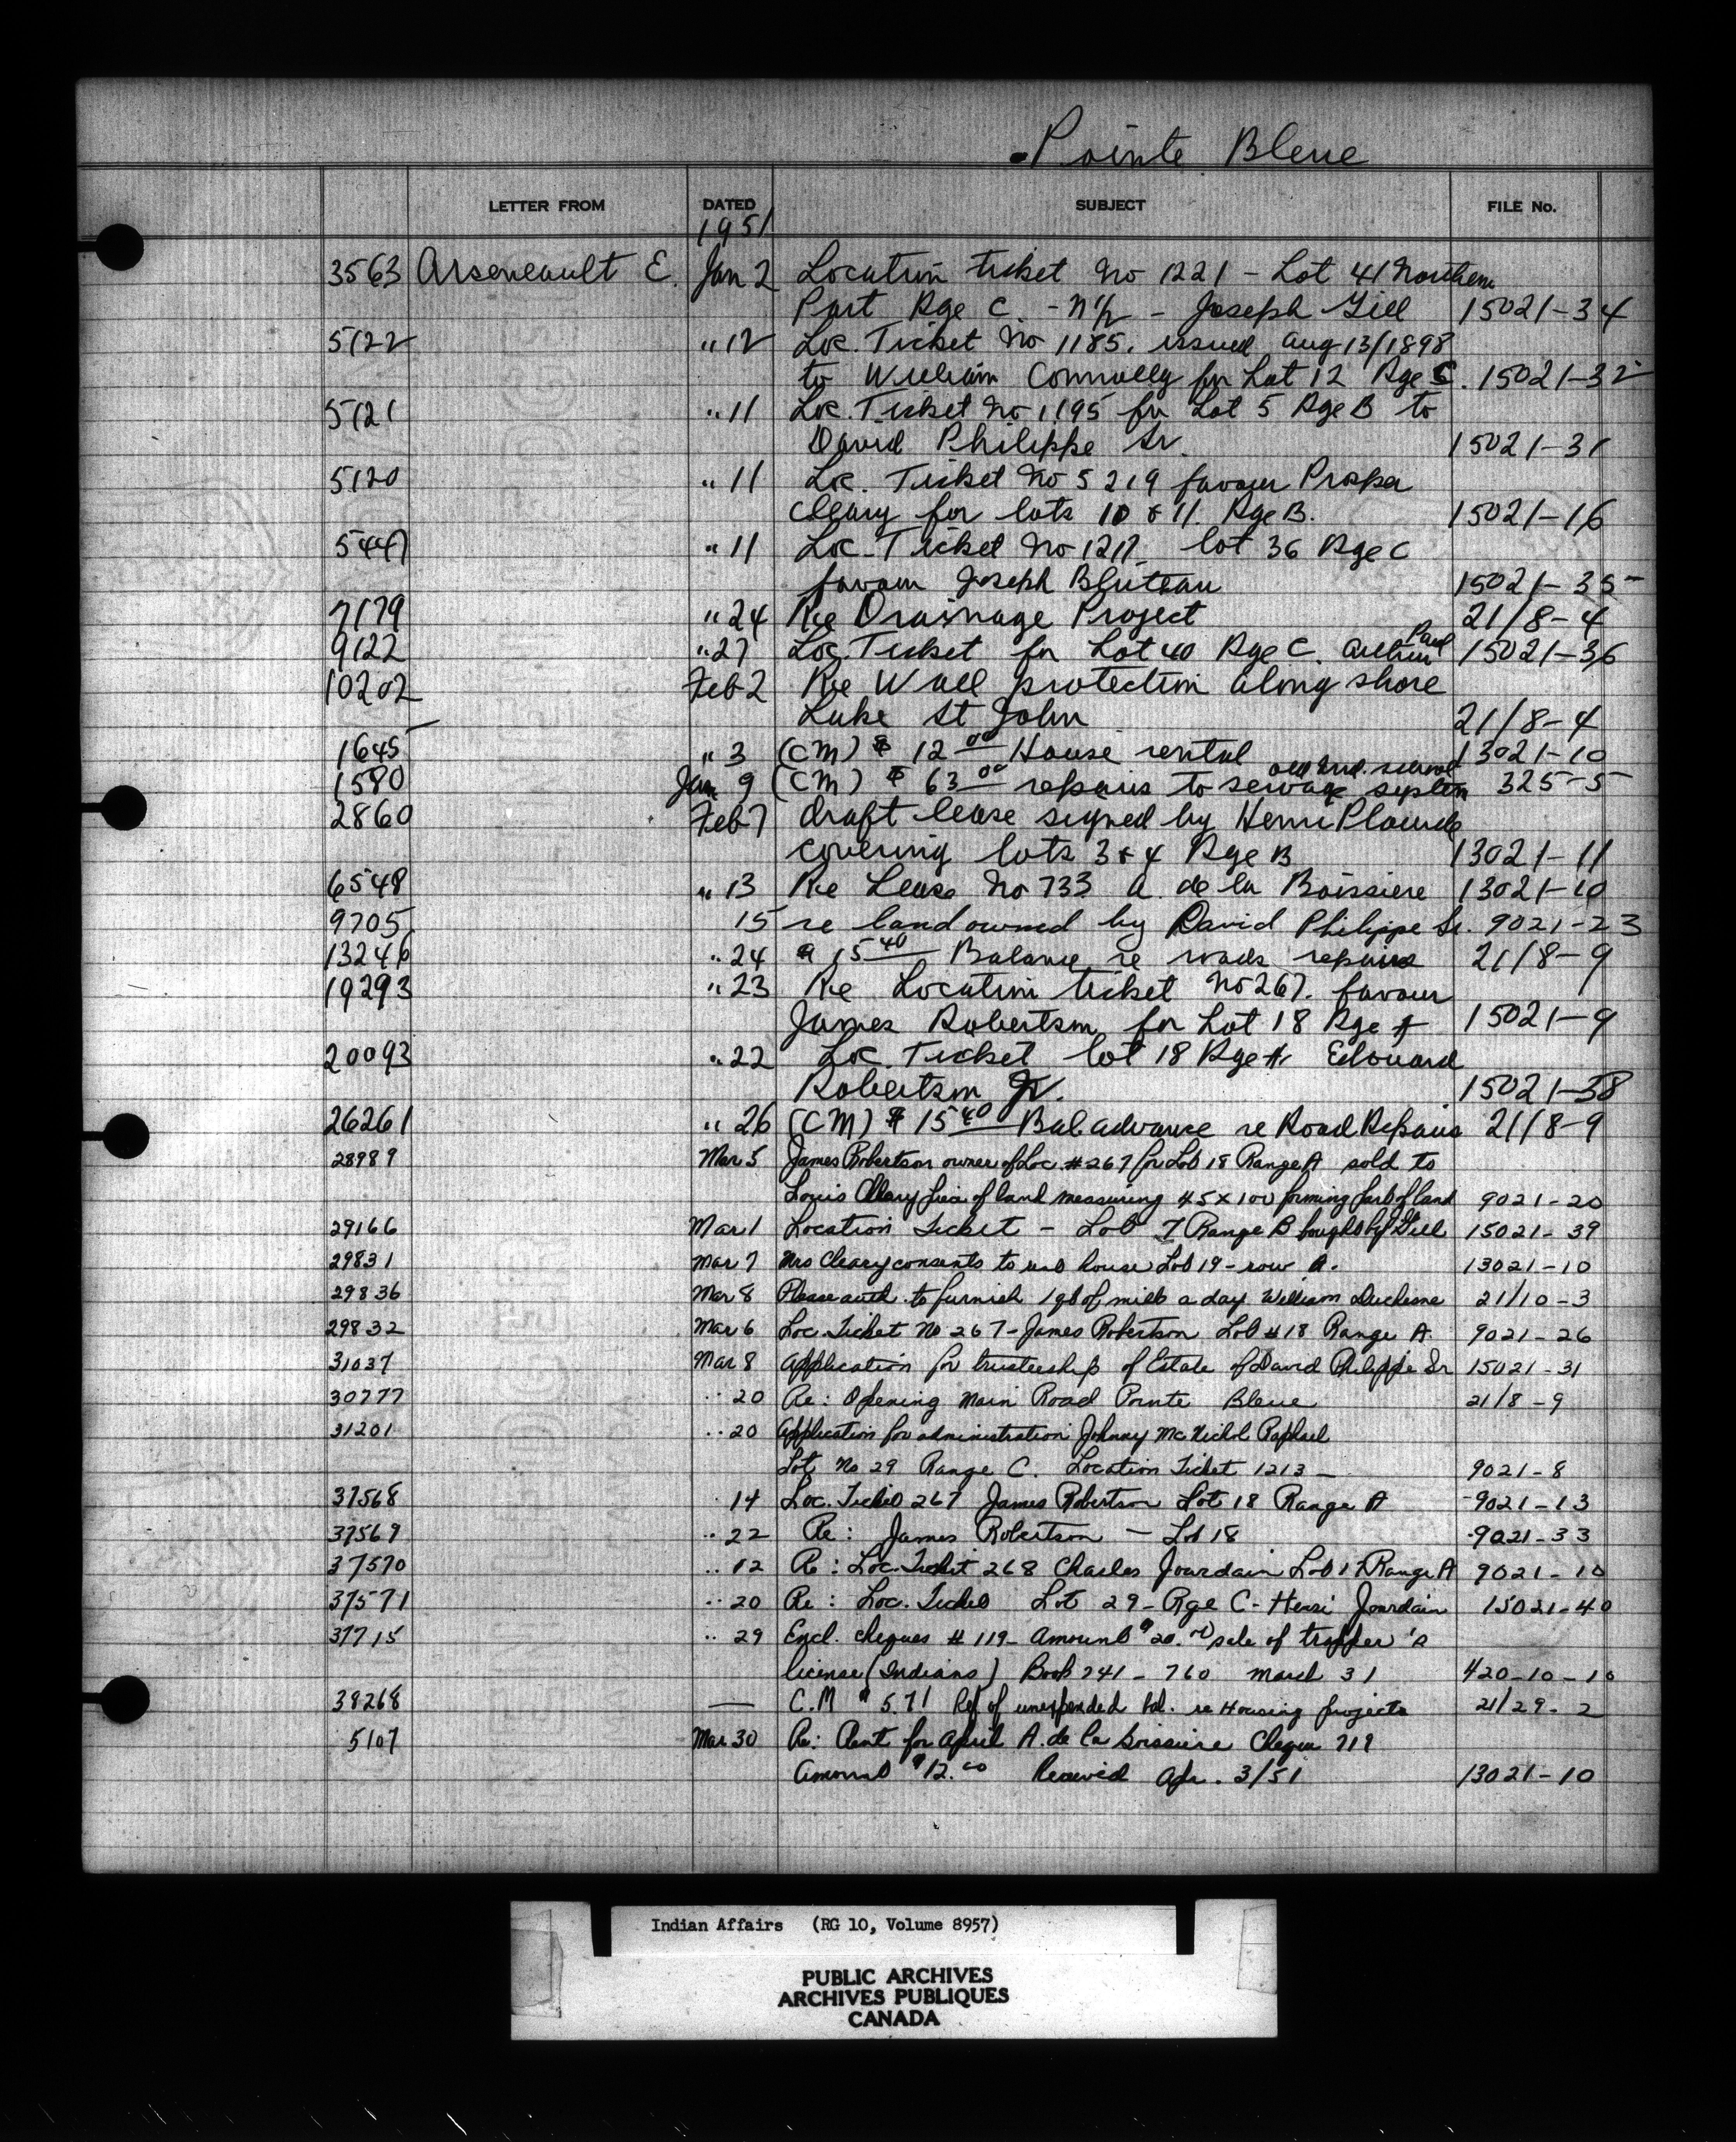 Pointe Bleue
LETTER FROM DATED SUBJECT FILE No.
1951
3563 Arseneault E. Jan 2 Location ticket No 1221 - Lot 41 Northern
Part Rge C. - N½ - Joseph Gill 15021-34
5122 " 12 Loc. Ticket No 1185. issued Aug 13/1898
to William Connolly for Lot 12 Rge C. 15021-32
5121 " 11 Loc. Ticket No 1195 for Lot 5 Rge B to
David Philippe Sr. 15021-31
5120 " 11 Loc. Ticket No 5219 favour Prosper
Cleary for lots 10 & 11. Rge B. 15021-16
5447 " 11 Loc. Ticket No 1217 lot 36 Rge C
favour Joseph Bluteau 15021-35
7179 " 24 Re Drainage Project 21/8-4
9122 " 27 Loc. Ticket for Lot 40 Rge C. Arthur Paul 15021-36
10202 Feb 2 Re Wall protection along shore
Lake St John 21/8-4
1645 " 3 (CM) $ 12 00 House rental 13021-10
1580 Jan 9 (CM) $ 63 00 repairs to sewage system old Ind. school 325-5
2860 Feb 7 draft lease signed by Henri Plourde
covering lots 3 & 4 Rge B 13021-11
6548 " 13 Re Lease No 733 A. de la Boissiere 13021-10
9705 15 re land owned by David Philippe Sr. 9021-23
13246 " 24 $ 15 40 Balance re roads repairs 21/8-9
19293 " 23 Re Location ticket No 267. favour
James Robertson for Lot 18 Rge A 15021-9
20093 " 22 Loc. Ticket lot 18 Rge A Edouard
Robertson Jr. 15021-38
26261 " 26 (CM) $ 15 40 Bal advance re Road Repairs 21/8-9
28989 Mar 5 James Robertson owner of Loc. #267 for Lot 18 Range A sold to
Louis Cleary piece of land measuring 45 x 100 forming part of land 9021-20
29166 Mar 1 Location Ticket - Lot 7 Range B bought by Gill 15021-39
29831 Mar 7 Mrs Cleary consents to house Lot 19 - row A. 13021-10
29836 Mar 8 Please auth. to furnish 1 qt of milk a day William Duchesne 21/10-3
29832 Mar 6 Loc. Ticket No 267 - James Robertson Lot #18 Range A. 9021-26
31037 Mar 8 Application for trusteeship of Estate of David Philippe Sr 15021-31
30777 " 20 Re: Opening Main Road Pointe Bleue 21/8-9
31201 " 20 Application for administration Johnny McNichol Raphael
Lot No 29 Range C. Location Ticket 1213 - 9021-8
37568 14 Loc. Ticket 267 James Robertson Lot 18 Range A 9021-13
37569 " 22 Re: James Robertson - Lot 18 9021-33
37570 " 12 Re: Loc. Ticket 268 Charles Jourdain Lot 17 Range A 9021-10
37571 " 20 Re: Loc. Ticket Lot 29 - Rge C - Henri Jourdain 15021-40
37715 " 29 Encl. cheques # 119 - Amount $20.00 sale of trapper's
license (Indians) Book 741 - 760 March 31 420-10-10
38268 — C.M $ 5.71 Ref of unexpended bal. re Housing projects 21/29-2
5107 Mar 30 Re: Rent for April A. de la Boissiere Cheque 719
Amount $12.00 Received Apr. 3/51 13021-10
Indian Affairs (RG 10, Volume 8957)
PUBLIC ARCHIVES
ARCHIVES PUBLIQUES
CANADA